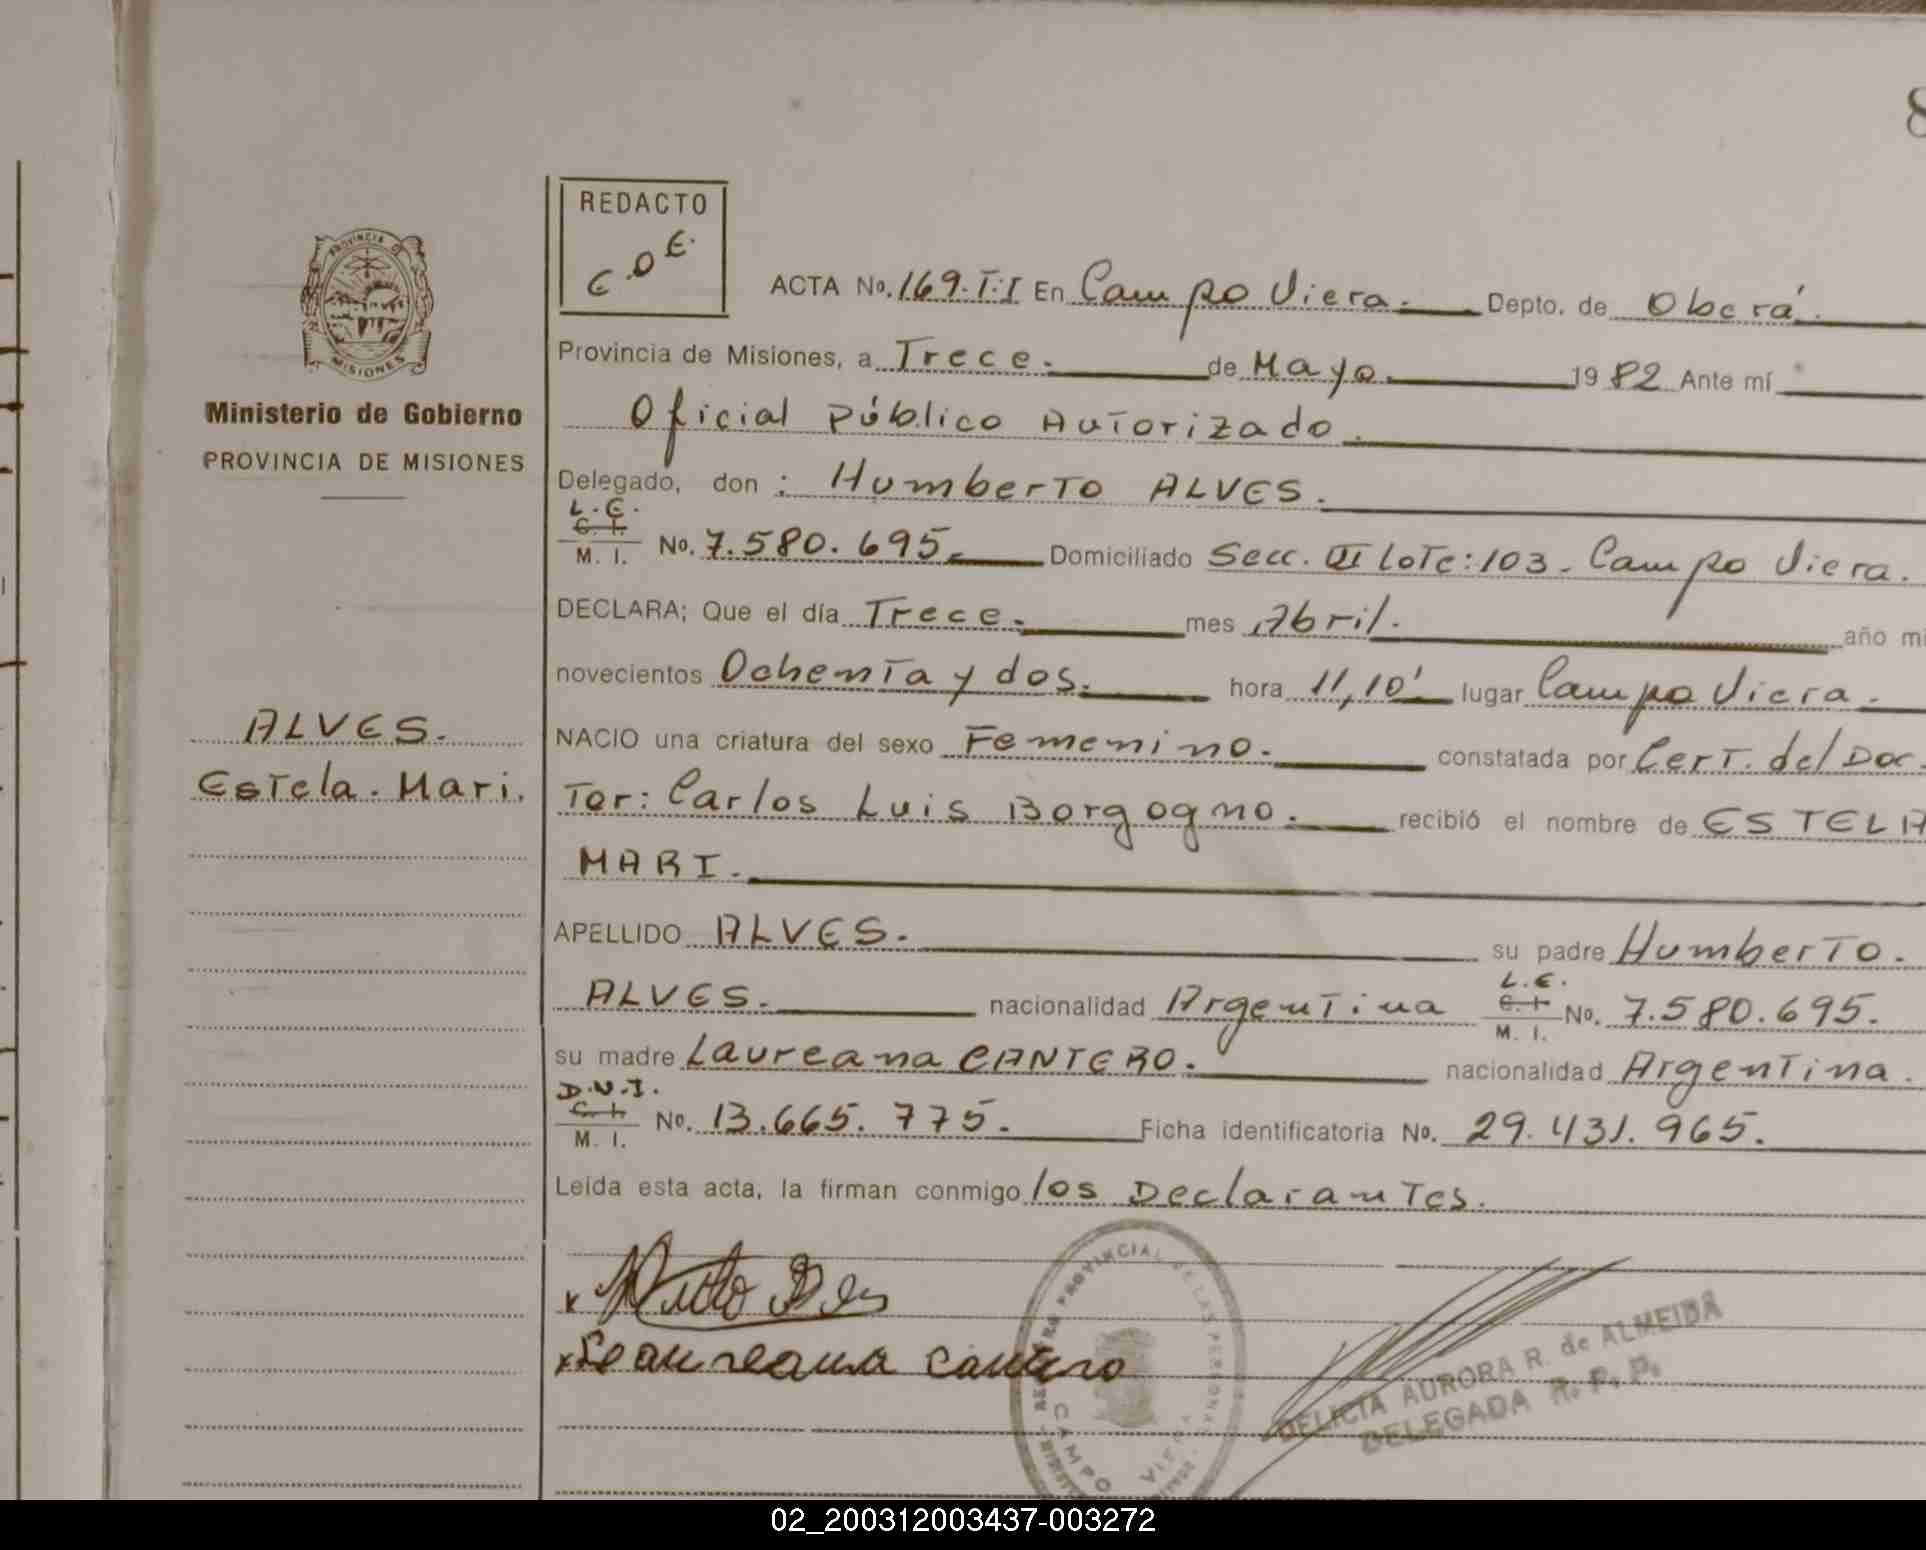 8
REDACTO
C.D.E.
PROVINCIA DE
MISIONES
Ministerio de Gobierno
PROVINCIA DE MISIONES
ALVES.
Estela. Mari.
ACTA No. 169. T: I En Campo Viera. Depto. de Oberá.
Provincia de Misiones, a Trece. de Mayo. 19 82 Ante mí
Oficial Público Autorizado.
Delegado, don : Humberto ALVES.
L. E.
C. I.
M. I. No. 7.580.695. Domiciliado Secc. VI Lote: 103. Campo Viera.
DECLARA; Que el día Trece. mes Abril. año mi
novecientos Ochenta y dos. hora 11,10' lugar Campo Viera.
NACIO una criatura del sexo Femenino. constatada por Cert. del Doc.
Tor: Carlos Luis Borgogno. recibió el nombre de ESTELA
MARI.
APELLIDO ALVES. su padre Humberto.
L. E.
ALVES. nacionalidad Argentina C. I. M. I. No. 7.580.695.
su madre Laureana CANTERO. nacionalidad Argentina.
D.N.I.
C. I.
M. I. No. 13.665.775. Ficha identificatoria No. 29.431.965.
Leída esta acta, la firman conmigo los Declarantes.
x
x Leaureana Cantero
PROVINCIAL DE LAS PERSONAS
CAMPO VIERA
DELICIA AURORA R. de ALMEIDA
DELEGADA R. P. P.
02_200312003437-003272